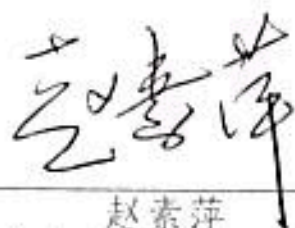 赵素萍
赵素萍